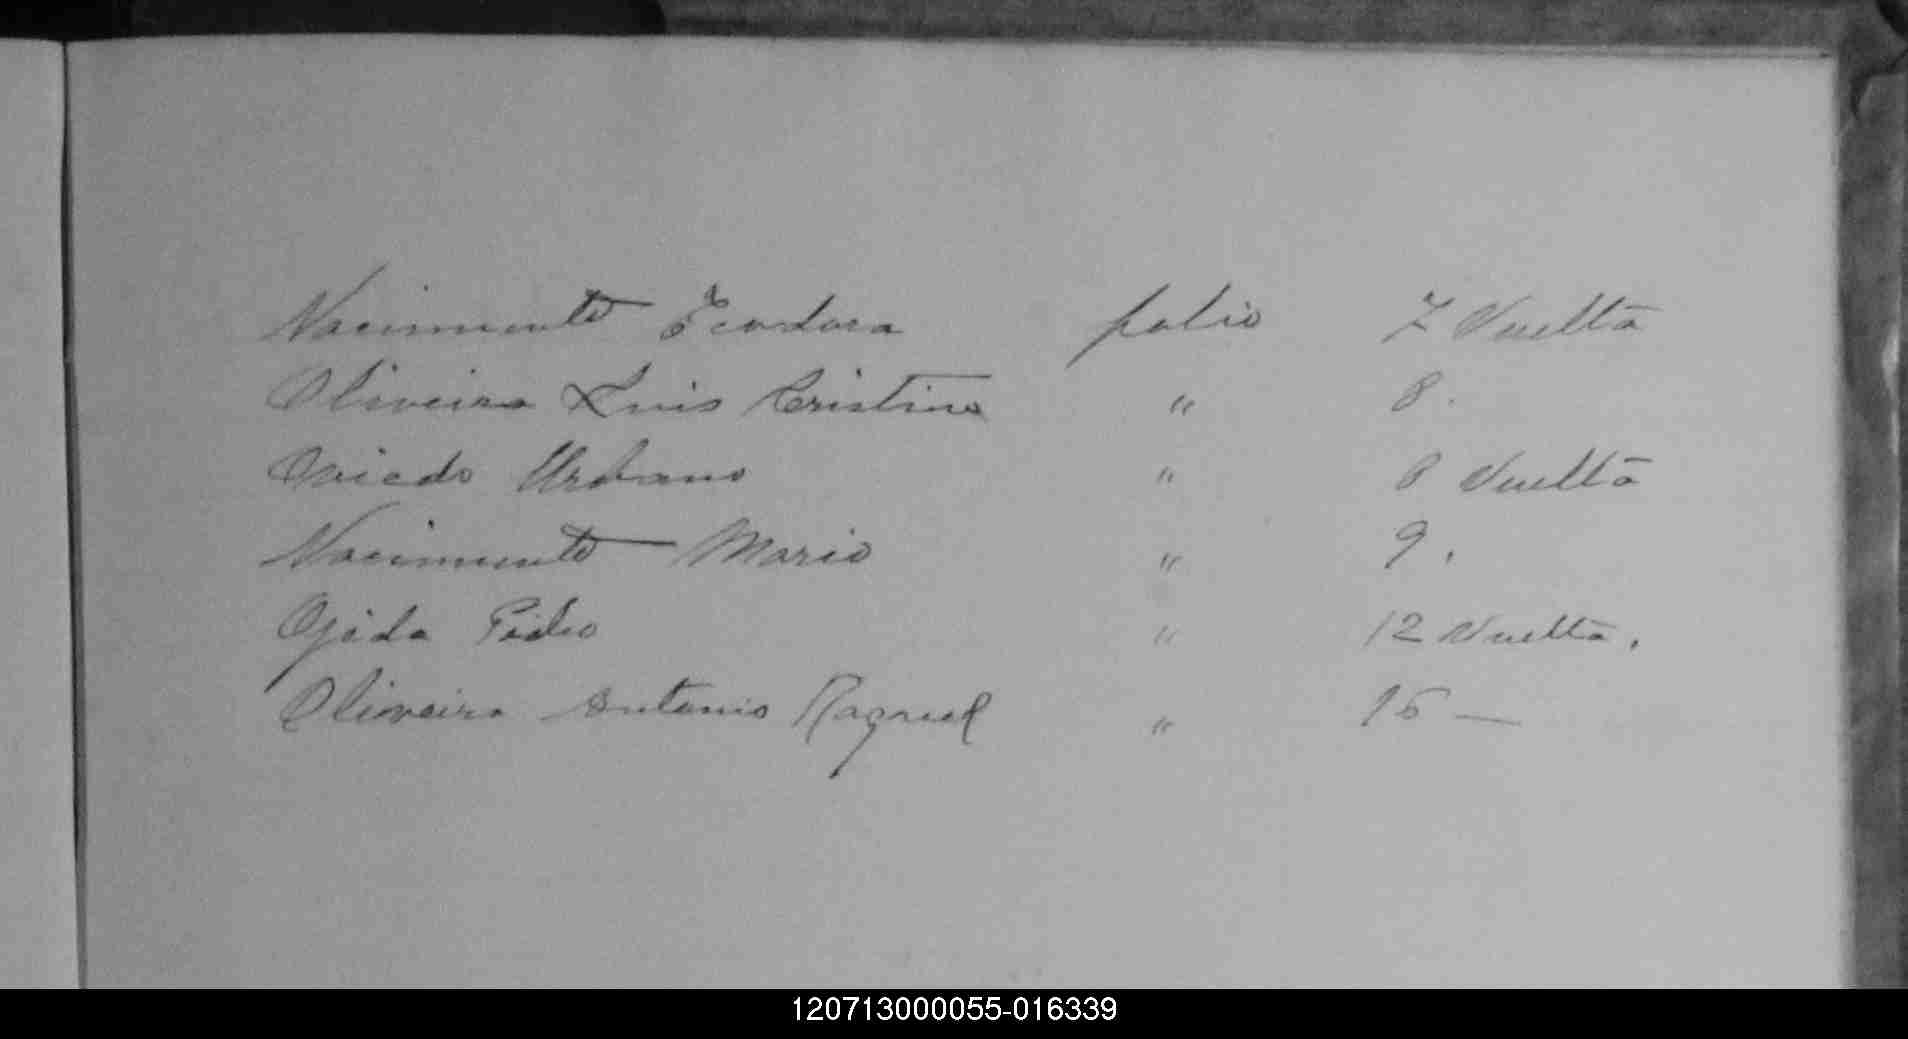 Nacimiento Teodora folio 7 Vuelta
Oliveira Luis Cristino " 8.
Oviedo Urbano " 8 Vuelta
Nacimiento Mario " 9.
Ojeda Pedro " 12 Vuelta.
Oliveira Antonio Raquel " 15 —
120713000055-016339